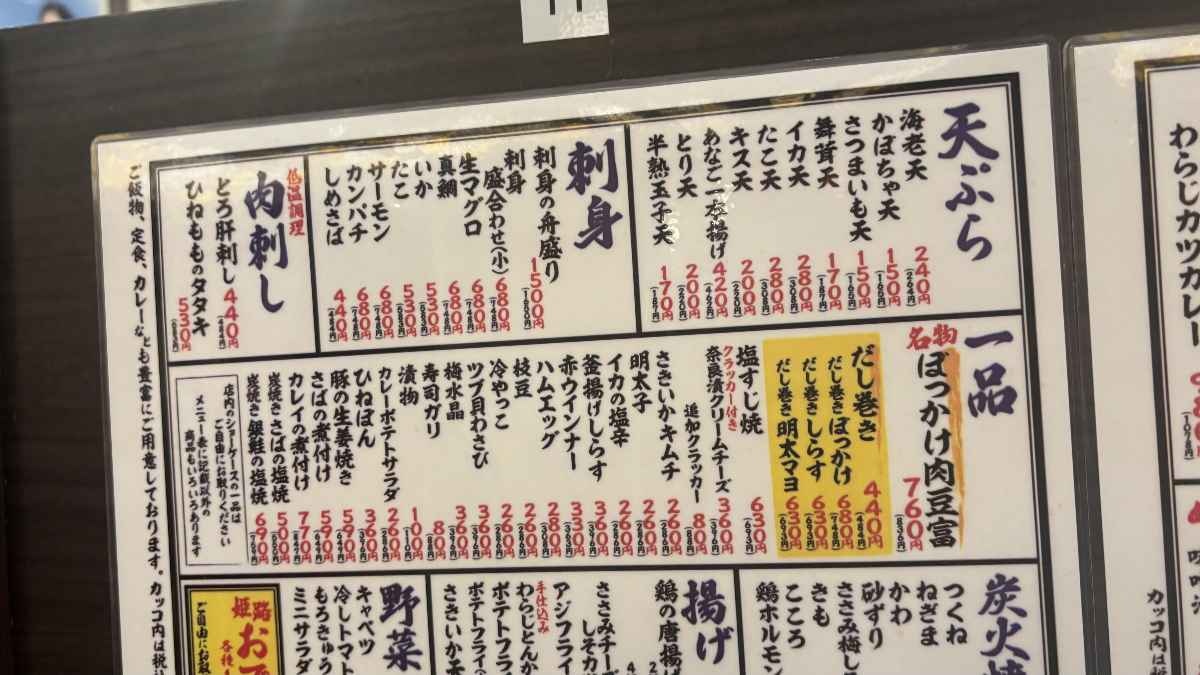 天ぷら
海老天 240円 (264円)
かぼちゃ天 150円 (165円)
さつまいも天 150円 (165円)
舞茸天 170円 (187円)
イカ天 280円 (308円)
たこ天 280円 (308円)
キス天 200円 (220円)
あなご一本揚げ 420円 (462円)
とり天 200円 (220円)
半熟玉子天 170円 (187円)
刺身
刺身の舟盛り 1500円 (1650円)
刺身
盛合わせ(小) 680円 (748円)
生マグロ 680円 (748円)
真鯛 680円 (748円)
いか 530円 (583円)
たこ 530円 (583円)
サーモン 680円 (748円)
カンパチ 680円 (748円)
しめさば 440円 (484円)
低温調理
肉刺し
とろ肝刺し 440円 (484円)
ひねもものタタキ 530円 (583円)
一品
名物
ぼっかけ肉豆富 760円 (836円)
だし巻き 440円 (484円)
だし巻きぼっかけ 680円 (748円)
だし巻きしらす 630円 (693円)
だし巻き明太マヨ 630円 (693円)
塩すじ焼 630円 (693円)
クラッカー付き
奈良漬クリームチーズ 360円 (396円)
追加クラッカー 80円 (88円)
さきいかキムチ 260円 (286円)
明太子 260円 (286円)
イカの塩辛 260円 (286円)
釜揚げしらす 360円 (396円)
赤ウインナー 330円 (363円)
ハムエッグ 280円
枝豆 260円 (286円)
冷やっこ 260円 (286円)
ツブ貝わさび 360円 (396円)
梅水晶 360円 (396円)
寿司ガリ 80円 (88円)
漬物 100円
カレーポテトサラダ 260円 (286円)
ひねぽん 360円 (396円)
豚の生姜焼き 590円 (649円)
さばの煮付け 590円 (649円)
カレイの煮付け 740円
炭焼きさばの塩焼 500円
炭焼き銀鮭の塩焼 690円
店内のショーケースの一品は
ご自由にお取りください
メニュー表に記載以外の
商品もいろいろあります
炭火焼
つくね
ねぎま
かわ
砂ずり
ささみ梅し
きも
こころ
鶏ホルモン
揚げ
鶏の唐揚
ささみチーズ
しそカ
アジフライ
手仕込み
わらじとんか
ポテトフラ
ポテトフライ
ささいか天
野菜
キャベツ
冷しトマト
もろきゅう
ミニサラダ
姫路
おで
各種
ご自由にお取
ご飯物、定食、カレーなども豊富にご用意しております。カッコ内は税込
わらじカツカレー
カッコ内は税